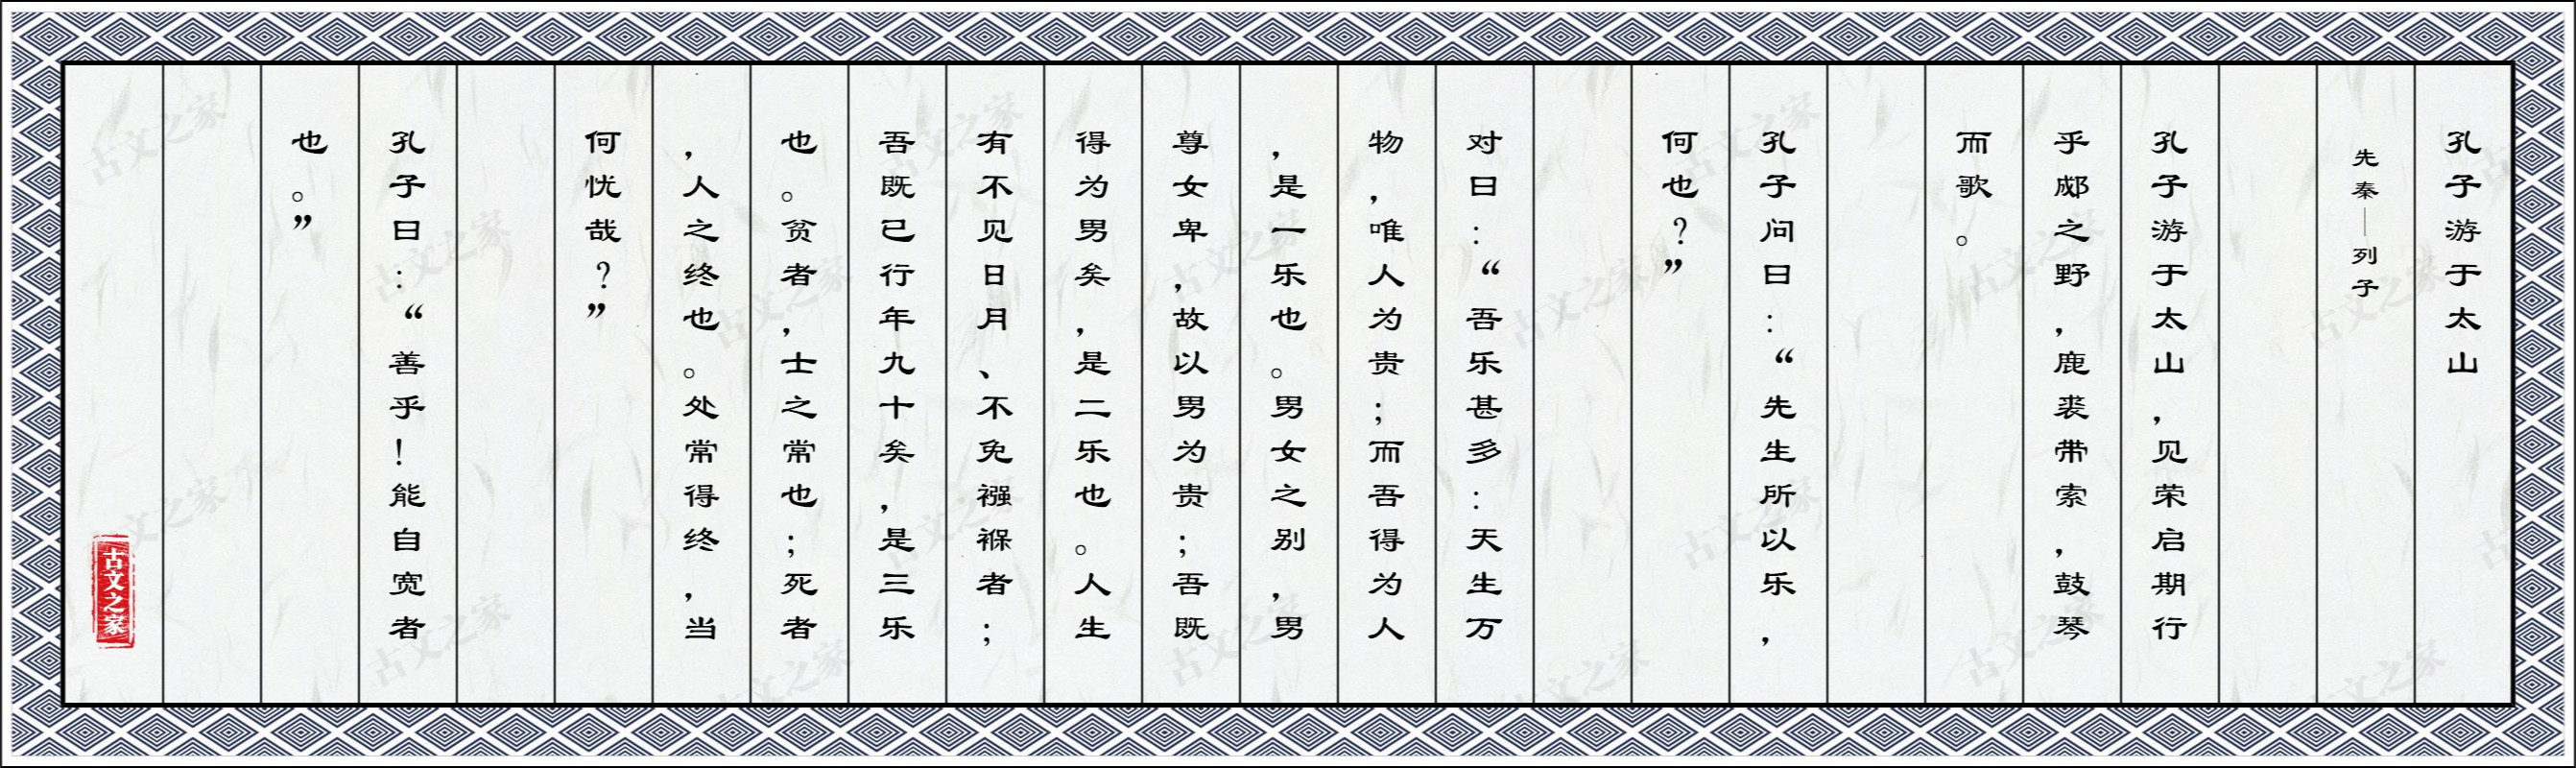 孔子游于太山
先秦—列子
孔子游于太山，见荣启期行
乎郕之野，鹿裘带索，鼓琴
而歌。
孔子问曰：“先生所以乐，
何也？”
对曰：“吾乐甚多：天生万
物，唯人为贵；而吾得为人
，是一乐也。男女之别，男
尊女卑，故以男为贵；吾既
得为男矣，是二乐也。人生
有不见日月、不免襁褓者；
吾既已行年九十矣，是三乐
也。贫者，士之常也；死者
，人之终也。处常得终，当
何忧哉？”
孔子曰：“善乎！能自宽者
也。”
古文之家